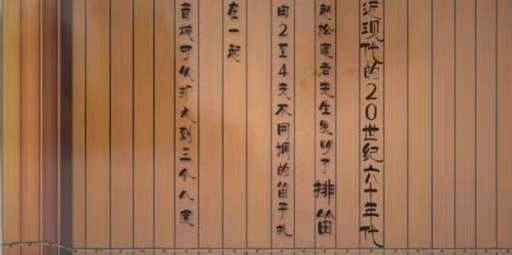 近现代的20世纪六十年代
赵松庭老先生发明了排笛
由2至4支不同调的笛子扎
在一起
音域可以扩大到三个八度